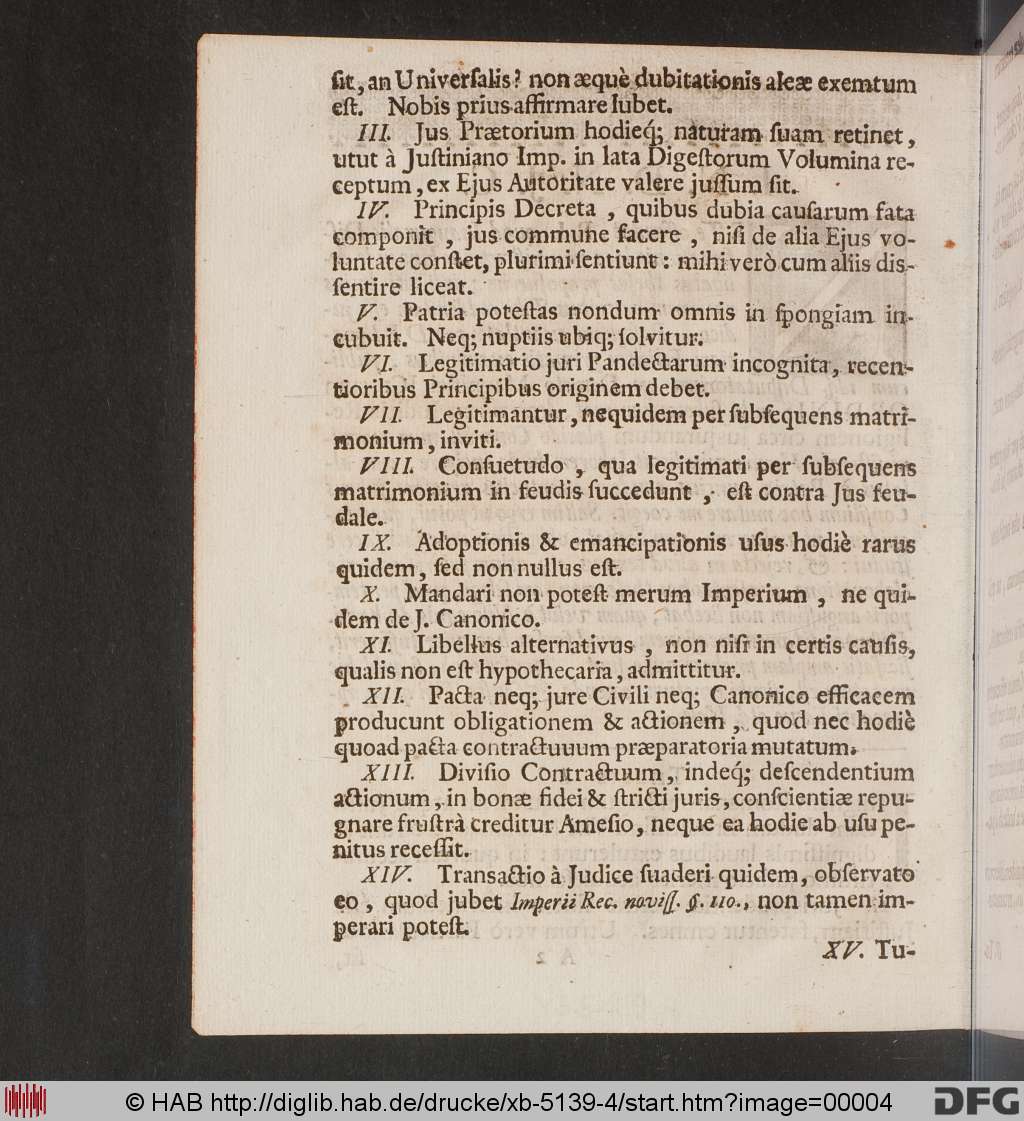 ſit, an Univerſalis? non æquè dubitationis aleæ exemtum
eſt. Nobis prius affirmare lubet.
III. Jus Prætorium hodieq́; naturam ſuam retinet,
utut à Juſtiniano Imp. in lata Digeſtorum Volumina re-
ceptum, ex Ejus Autoritate valere juſſum ſit.
IV. Principis Decreta, quibus dubia cauſarum fata
componit, jus commune facere, niſi de alia Ejus vo-
luntate conſtet, plurimi ſentiunt: mihi verò cum aliis dis-
ſentire liceat.
V. Patria poteſtas nondum omnis in ſpongiam in-
cubuit. Neq; nuptiis ubiq; ſolvitur.
VI. Legitimatio juri Pandectarum incognita, recen-
tioribus Principibus originem debet.
VII. Legitimantur, nequidem per ſubſequens matri-
monium, inviti.
VIII. Conſuetudo, qua legitimati per ſubſequens
matrimonium in feudis ſuccedunt, eſt contra Jus feu-
dale.
IX. Adoptionis & emancipationis uſus hodiè rarus
quidem, ſed non nullus eſt.
X. Mandari non poteſt merum Imperium, ne qui-
dem de J. Canonico.
XI. Libellus alternativus, non niſi in certis cauſis,
qualis non eſt hypothecaria, admittitur.
XII. Pacta neq; jure Civili neq; Canonico efficacem
producunt obligationem & actionem, quod nec hodiè
quoad pacta contractuuum præparatoria mutatum.
XIII. Diviſio Contractuum, indeq́; deſcendentium
actionum, in bonæ fidei & ſtricti juris, conſcientiæ repu-
gnare fruſtrà creditur Ameſio, neque ea hodie ab uſu pe-
nitus receſſit.
XIV. Transactio à Judice ſuaderi quidem, obſervato
eo, quod jubet Imperii Rec. noviſſ. §. 110., non tamen im-
perari poteſt.
XV. Tu-
© HAB http://diglib.hab.de/drucke/xb-5139-4/start.htm?image=00004
DFG